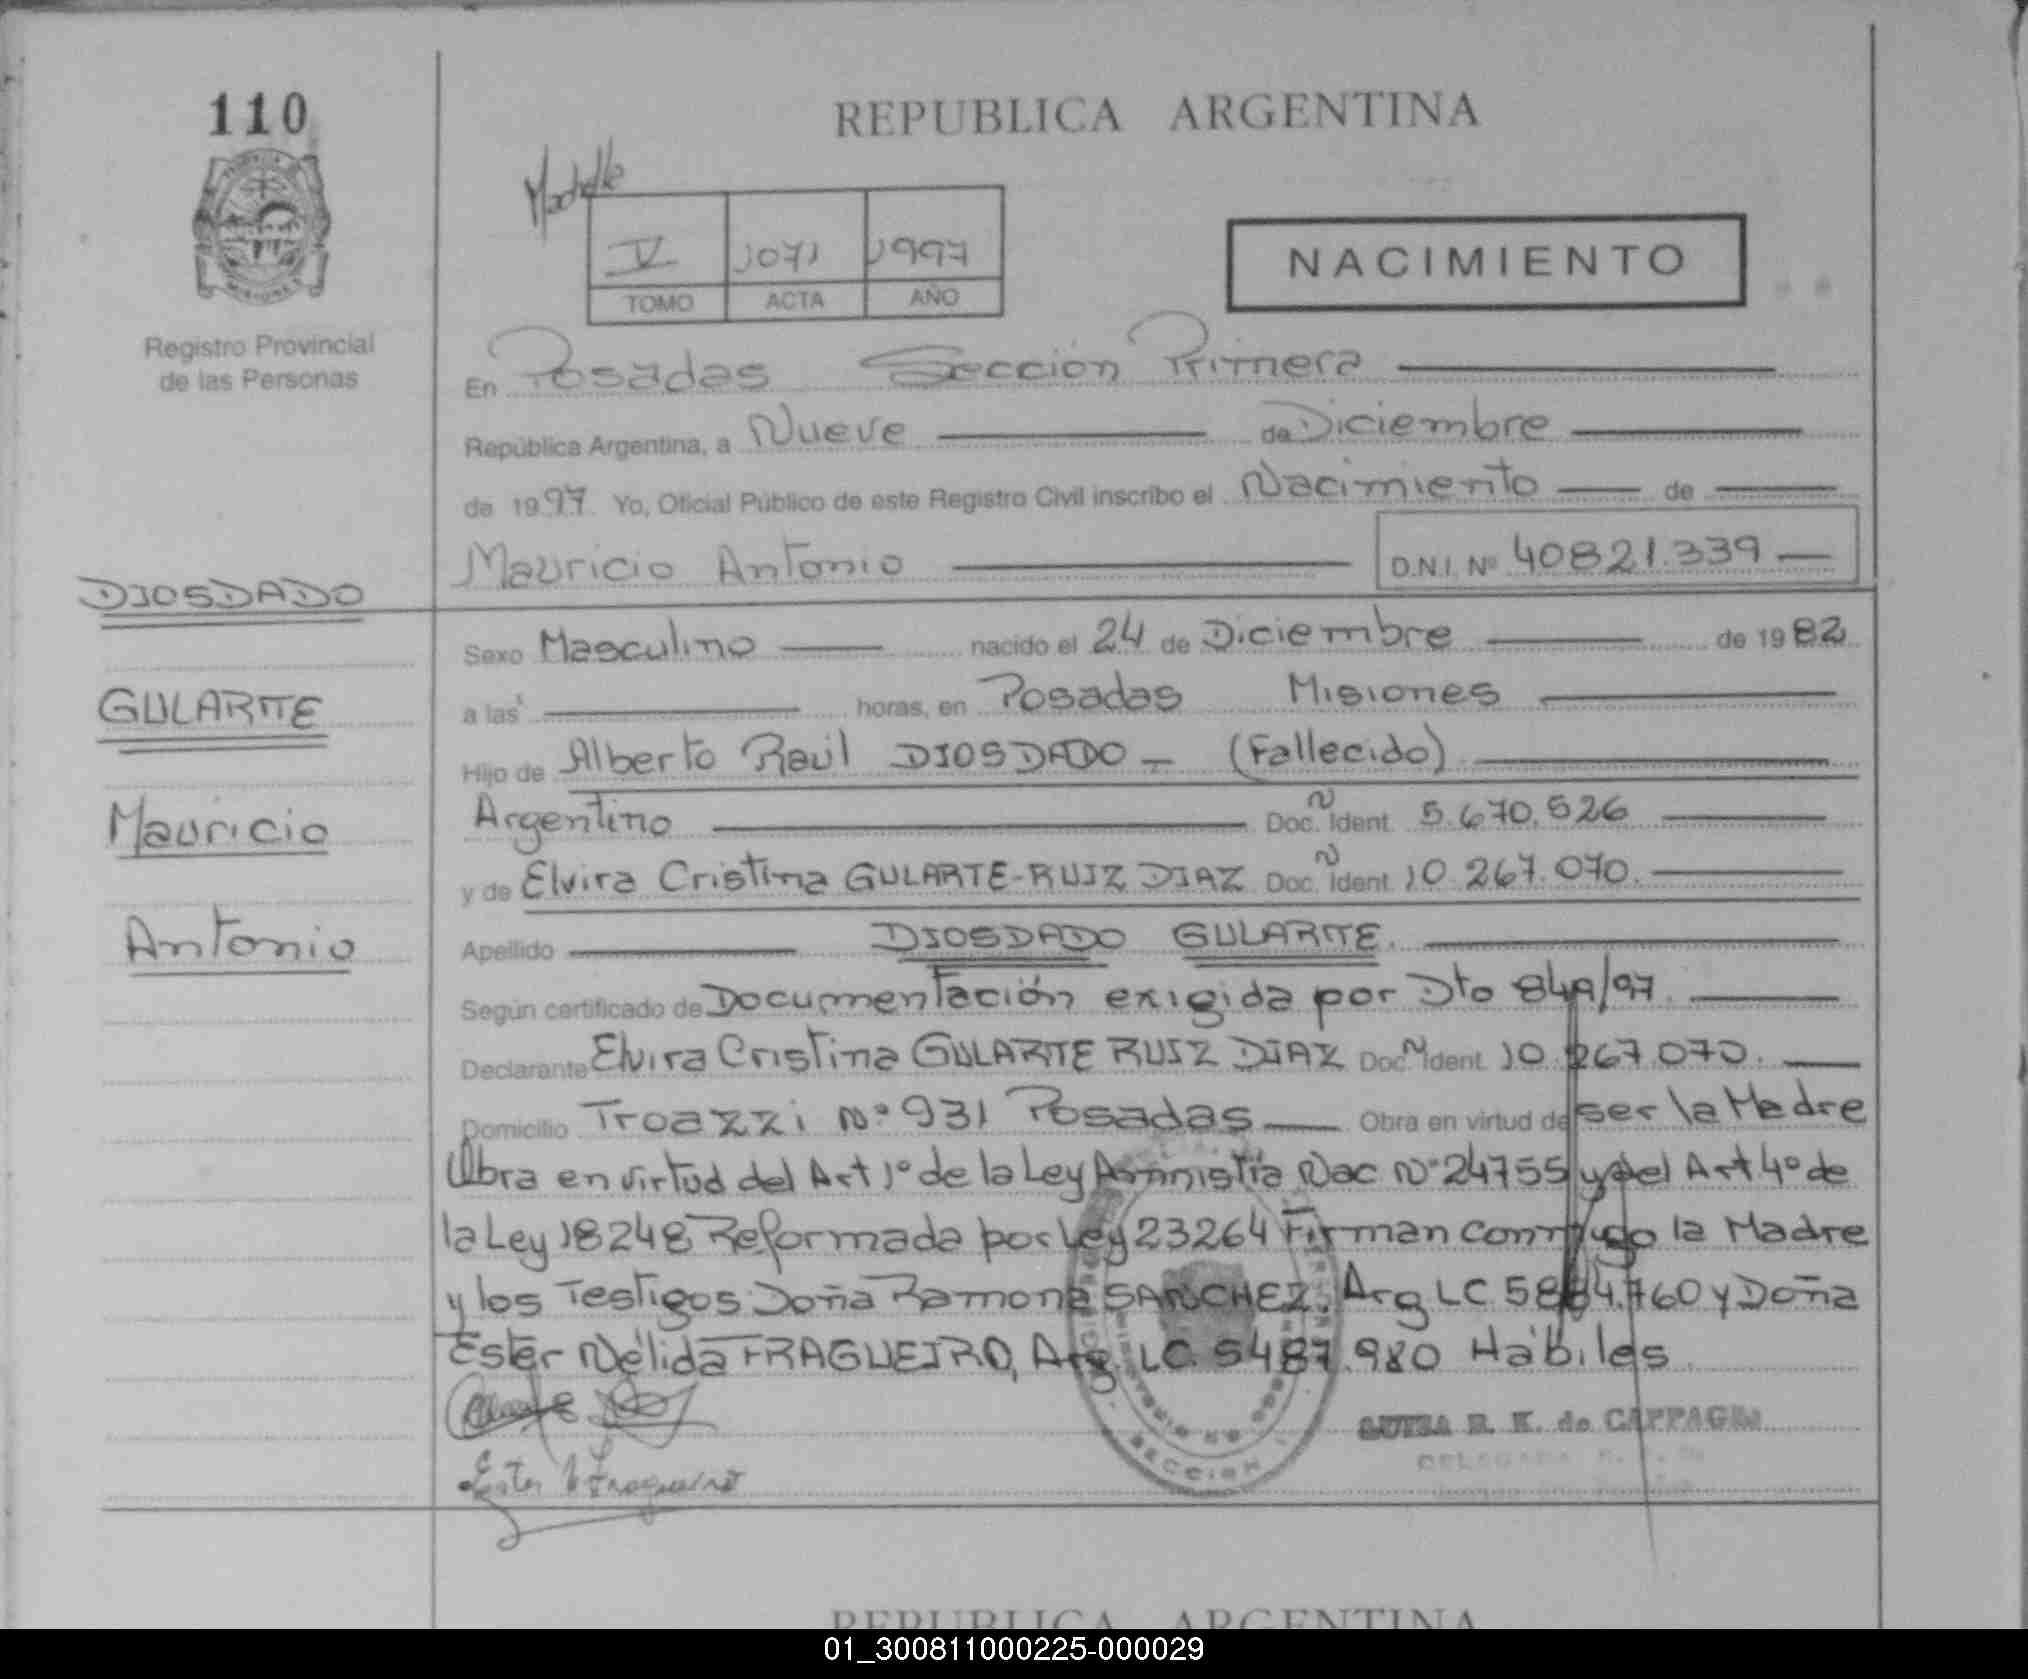 110
REPUBLICA ARGENTINA
V 1071 1997
TOMO ACTA AÑO
NACIMIENTO
Registro Provincial
de las Personas
En Posadas Sección Primera
República Argentina, a Nueve de Diciembre
de 1997 Yo, Oficial Público de este Registro Civil inscribo el Nacimiento de
Mauricio Antonio D.N.I. Nº 40821.339
DIOSDADO
GULARTE
Mauricio
Antonio
Sexo Masculino nacido el 24 de Diciembre de 1982
a las horas, en Posadas Misiones
Hijo de Alberto Raúl DIOSDADO - (Fallecido)
Argentino Doc. Ident. 5.670.526
y de Elvira Cristina GULARTE-RUIZ DIAZ Doc. Ident. 10.267.070.
Apellido DIOSDADO GULARTE.
Según certificado de Documentación exigida por Dto 849/97.
Declarante Elvira Cristina GULARTE RUIZ DIAZ Doc. Ident. 10.267.070.
Domicilio Troazzi Nº 931 Posadas Obra en virtud de ser la Madre
Obra en virtud del Art 1º de la Ley Amnistía Nac Nº 24755 y del Art 4º de
la Ley 18248 Reformada por Ley 23264 Firman conmigo la Madre
y los Testigos Doña Ramona SANCHEZ, Arg LC 5884.760 y Doña
Ester Nélida FRAGUEIRO, Arg. LC. 5487.980 Hábiles
Ester N Fragueiro
LUISA R. K. de CAPPAGLI
SECCION 1
REPUBLICA ARGENTINA
01_300811000225-000029